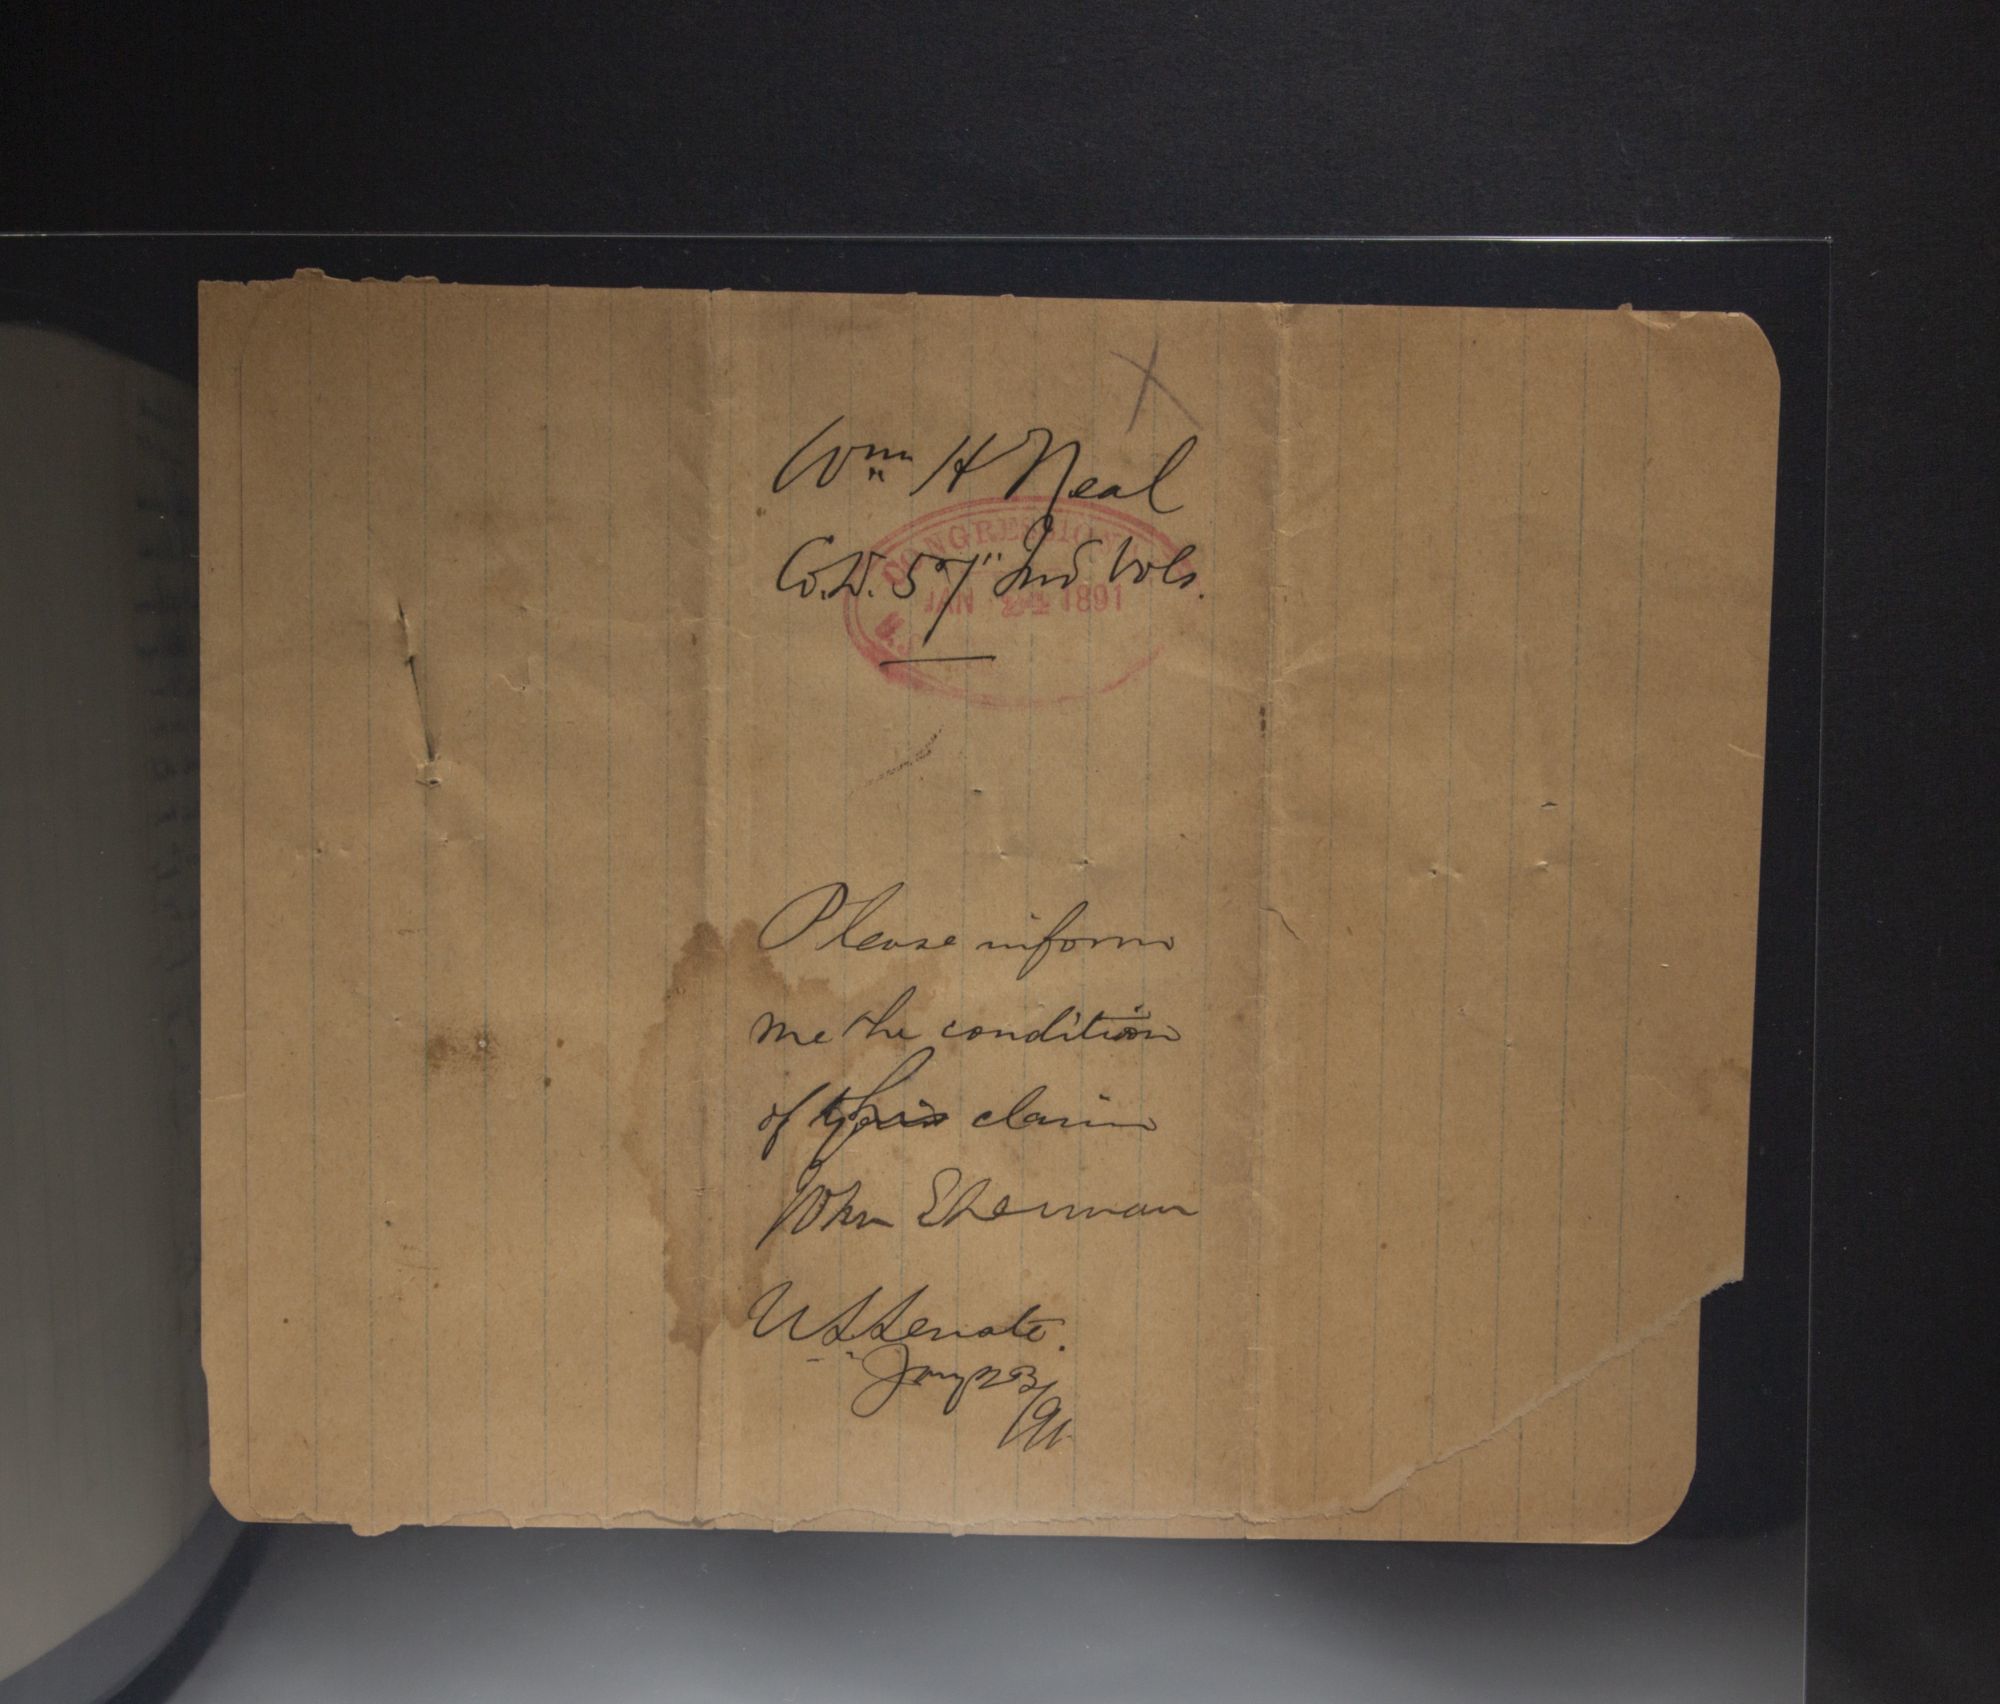 Wm H Neal
CONGRESSIONAL
Co. D. 57" Ind Vols.
JAN 24 1891
Please inform
me the condition
of this claim
John Sherman
U S Senate.
Jany 23/91